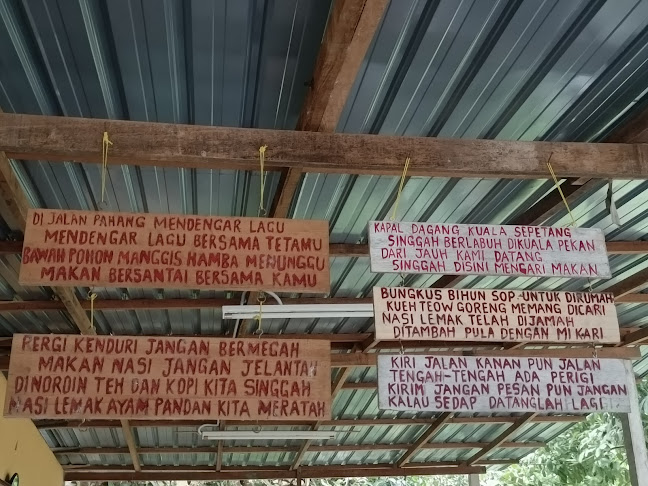 DI JALAN PAHANG MENDENGAR LAGU
MENDENGAR LAGU BERSAMA TETAMU
BAWAH POHON MANGGIS HAMBA MENUNGGU
MAKAN BERSANTAI BERSAMA KAMU
PERGI KENDURI JANGAN BERMEGAH
MAKAN NASI JANGAN JELANTAH
DI NORDIN TEH DAN KOPI KITA SINGGAH
NASI LEMAK AYAM PANDAN KITA MERATAH
KAPAL DAGANG KUALA SEPETANG
SINGGAH BERLABUH DIKUALA PEKAN
DARI JAUH KAMI DATANG
SINGGAH DISINI MENCARI MAKAN
BUNGKUS BIHUN SOP UNTUK DIRUMAH
KUEH TEOW GORENG MEMANG DICARI
NASI LEMAK TELAH DIJAMAH
DITAMBAH PULA DENGAN MI KARI
KIRI JALAN KANAN PUN JALAN
TENGAH-TENGAH ADA PERIGI
KIRIM JANGAN PESAN PUN JANGAN
KALAU SEDAP DATANGLAH LAGI